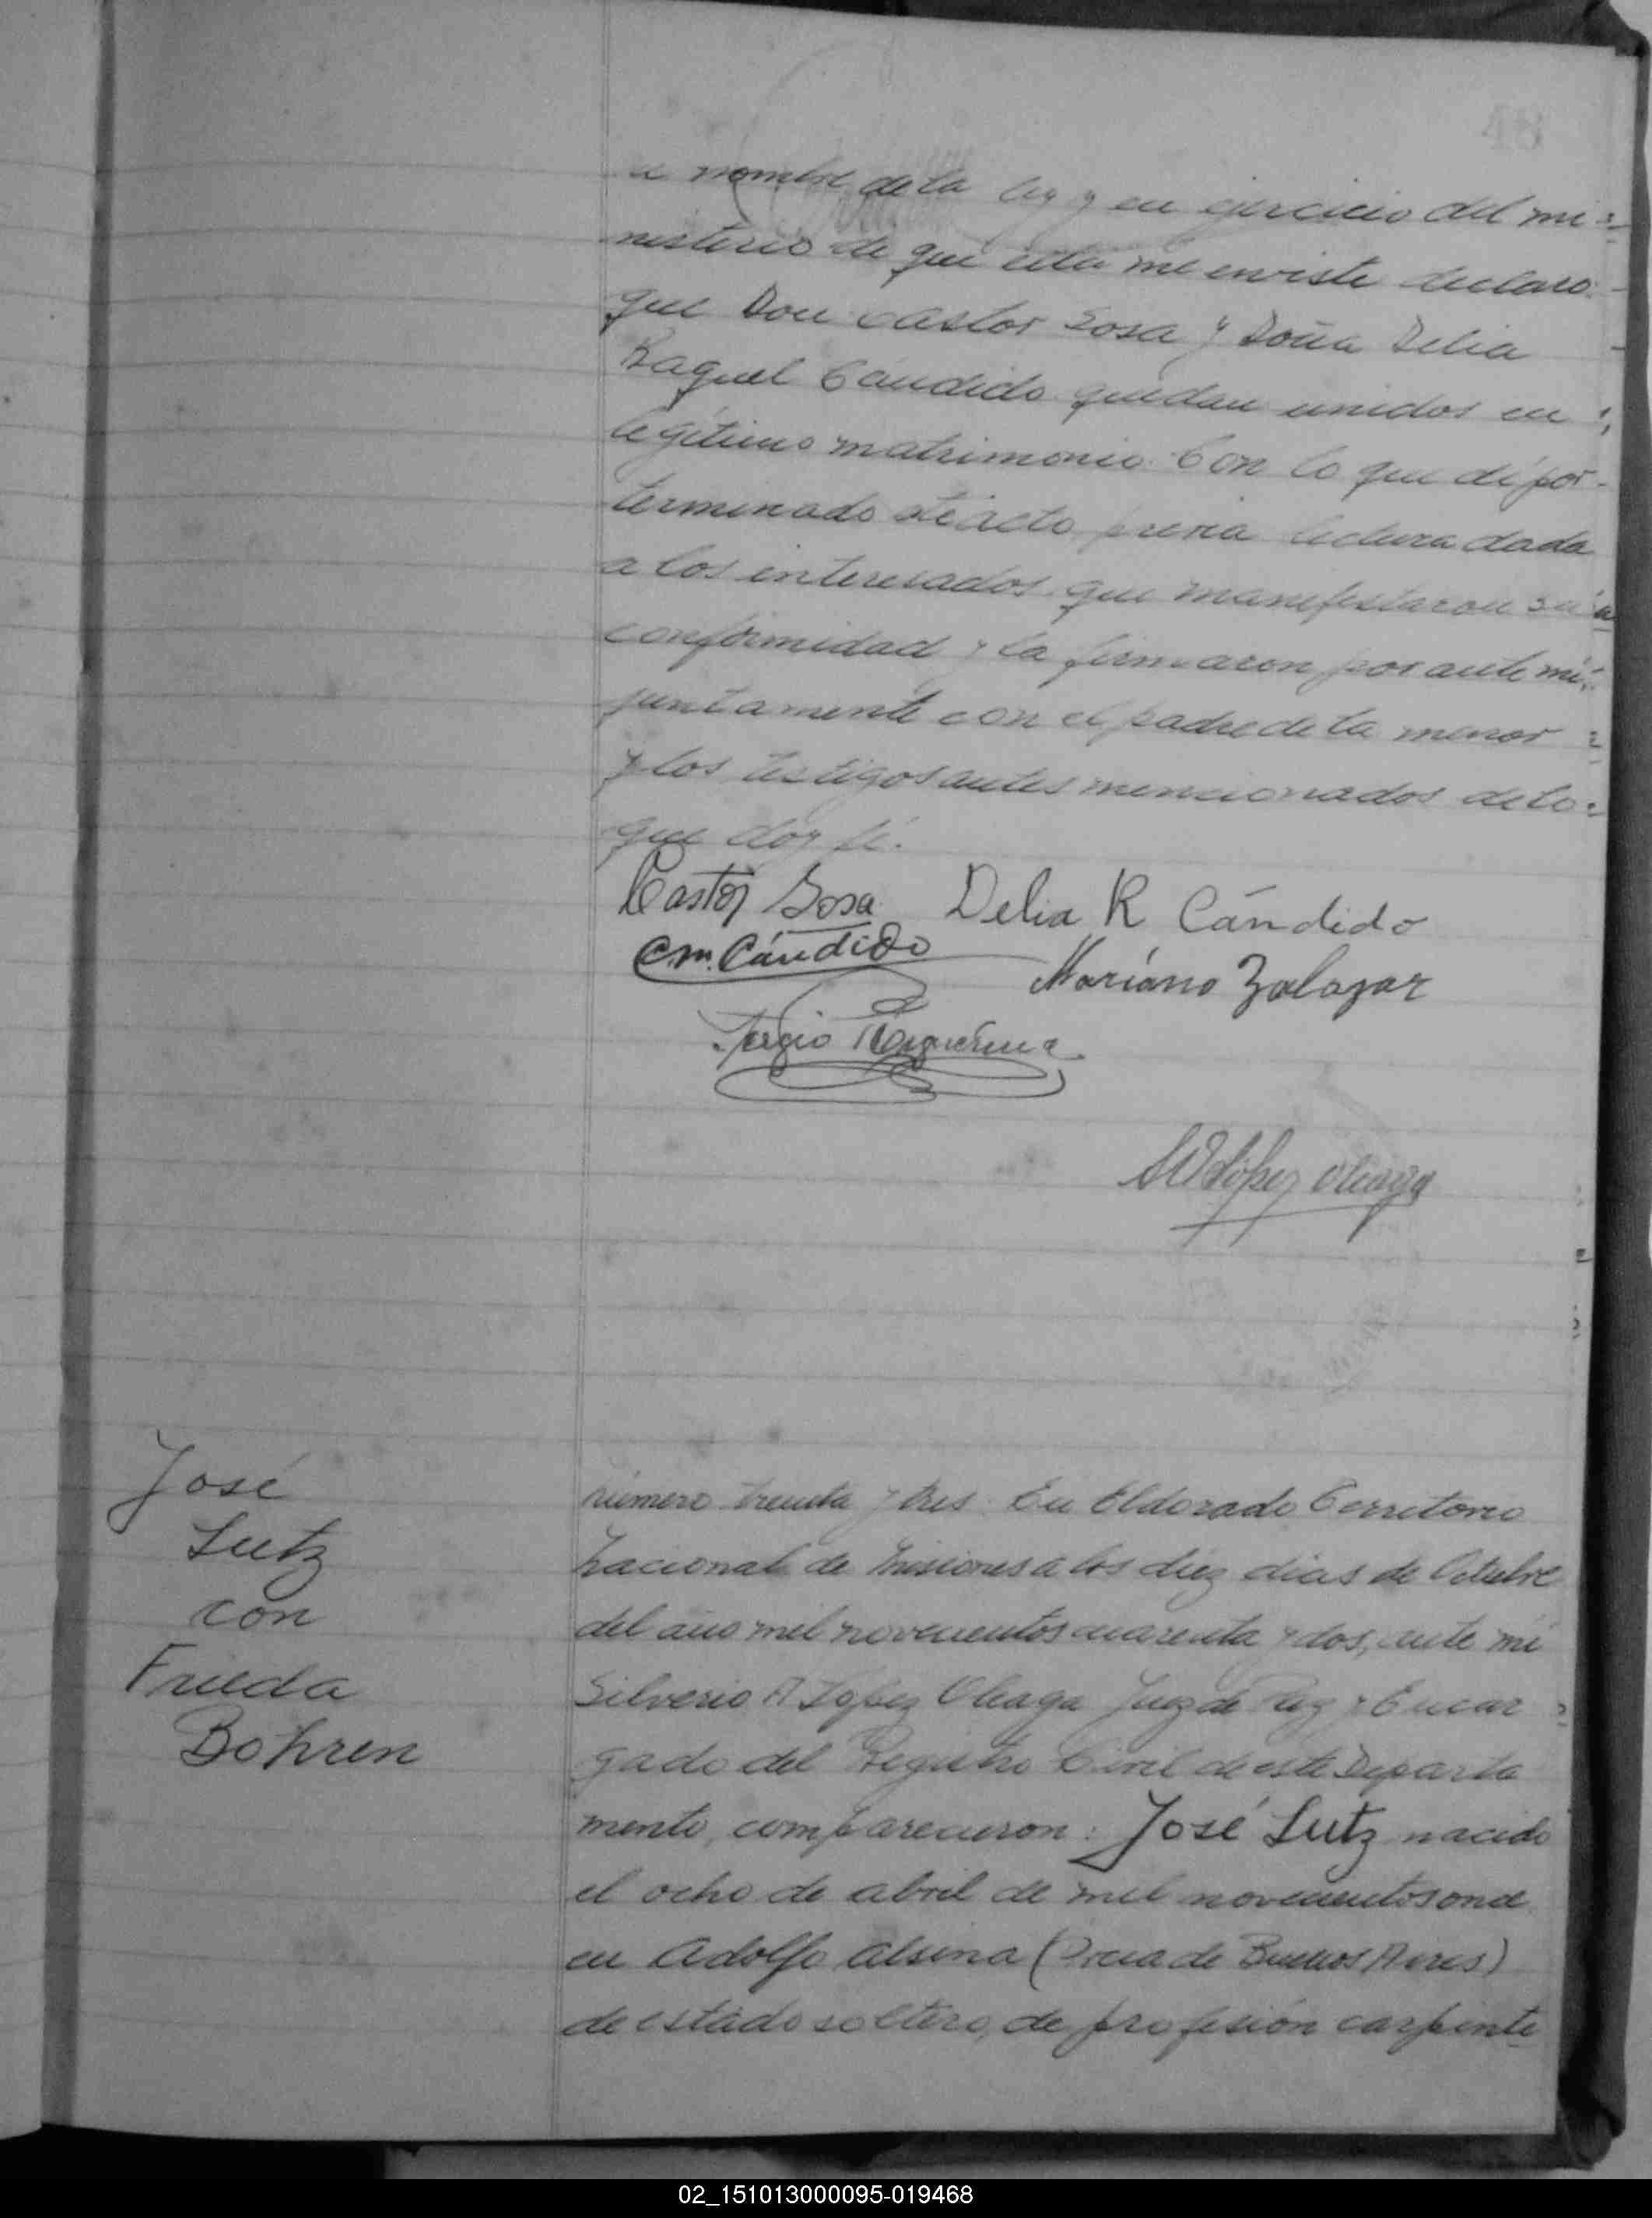 48
a nombre de la ley y en ejercicio del mi=
nisterio de que ella me enviste declaro
que Don Castor Sosa y Doña Delia
Raquel Cándido quedan unidos en
legítimo matrimonio. Con lo que dí por
terminado este acto previa lectura dada
a los interesados que manifestaron su
conformidad y la firmaron por ante mí
juntamente con el padre de la menor
y los testigos antes mencionados de lo
que doy fé.
Castor Sosa Delia R Cándido
C.M. Cándido
Mariano Zalazar
Sergio
López Oleaga
José
Lutz
con
Frieda
Bohren
número treinta y tres. En Eldorado Territorio
Nacional de Misiones a los diez dias de Octubre
del año mil novecientos cuarenta y dos, ante mí
Silverio A Lopez Oleaga Juez de Paz y Encar
gado del Registro Civil de este Departa
mento, comparecieron: José Lutz nacido
el ocho de abril de mil novecientos once
en Adolfo Alsina (Prcia de Buenos Aires)
de estado soltero, de profesión carpinte
02_151013000095-019468